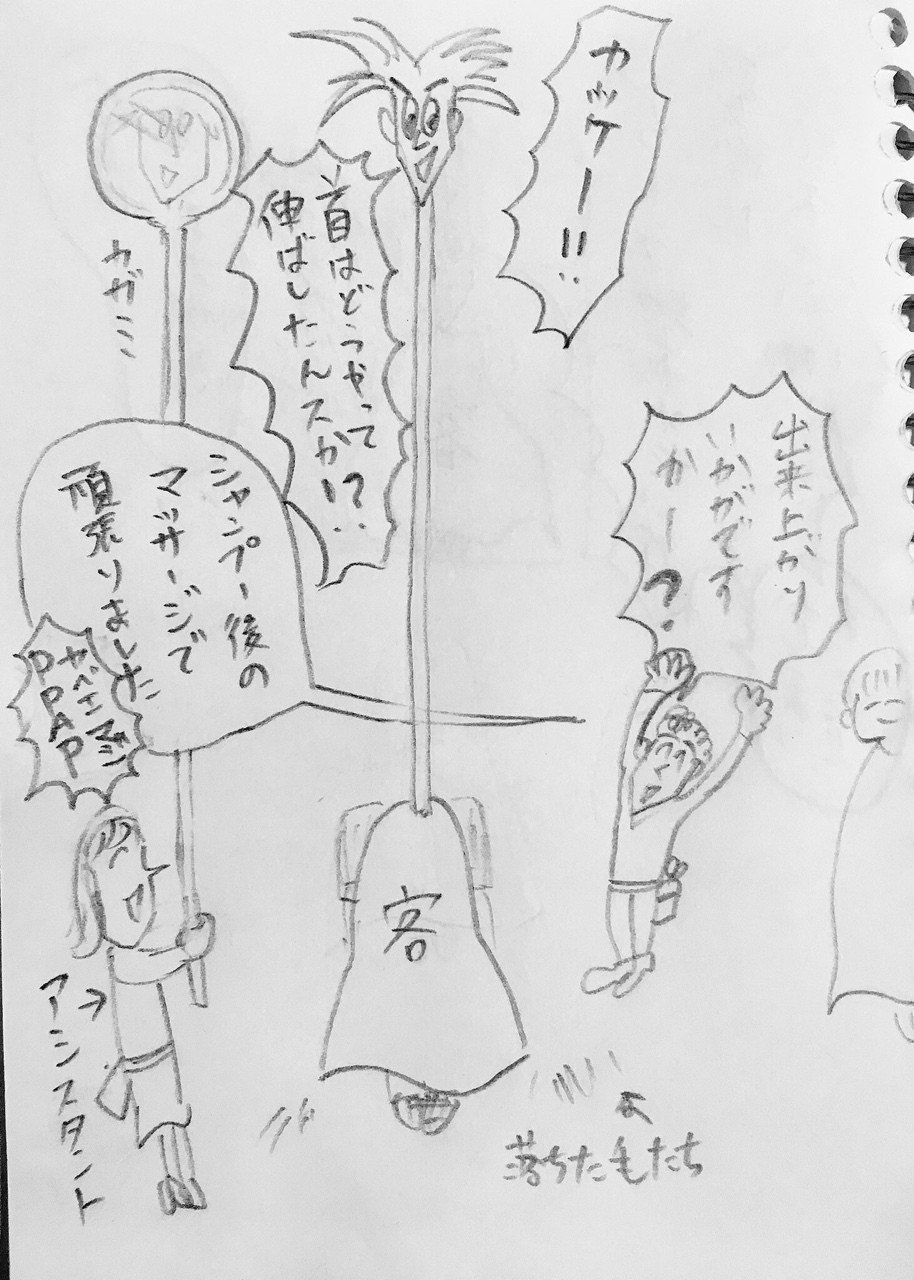 カッケー!!
首はどうやって
伸ばしたんスか!?
カガミ
出来上がり
いかがです
かー?
シャンプー後の
マッサージで
頑張りました
PPAP
客
アシスタント
落ちた毛たち